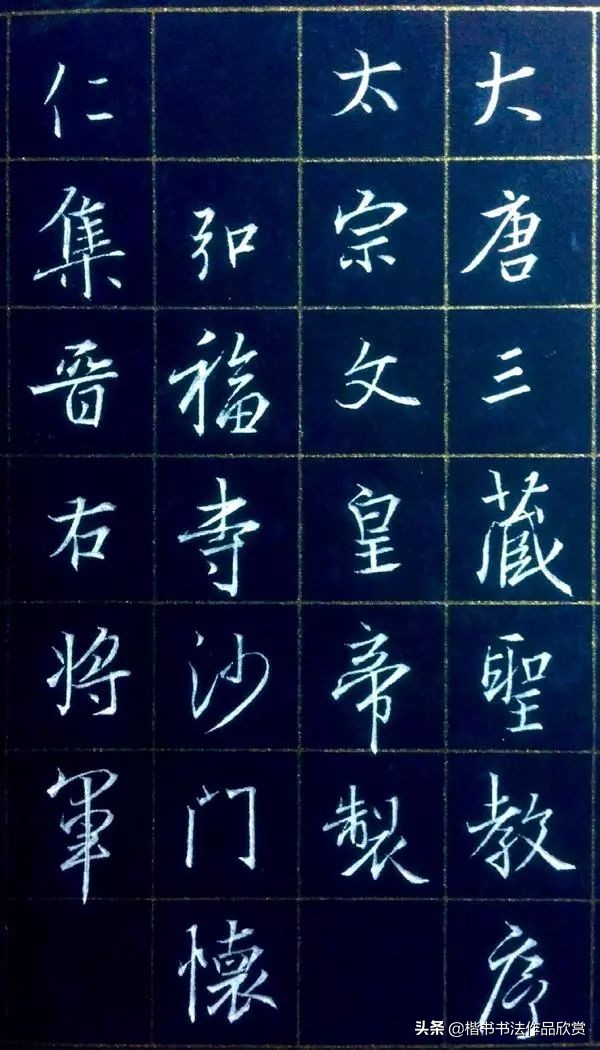 大唐三藏聖教序
太宗文皇帝製
弘福寺沙门懷
仁集晉右将軍
头条 @楷书书法作品欣赏